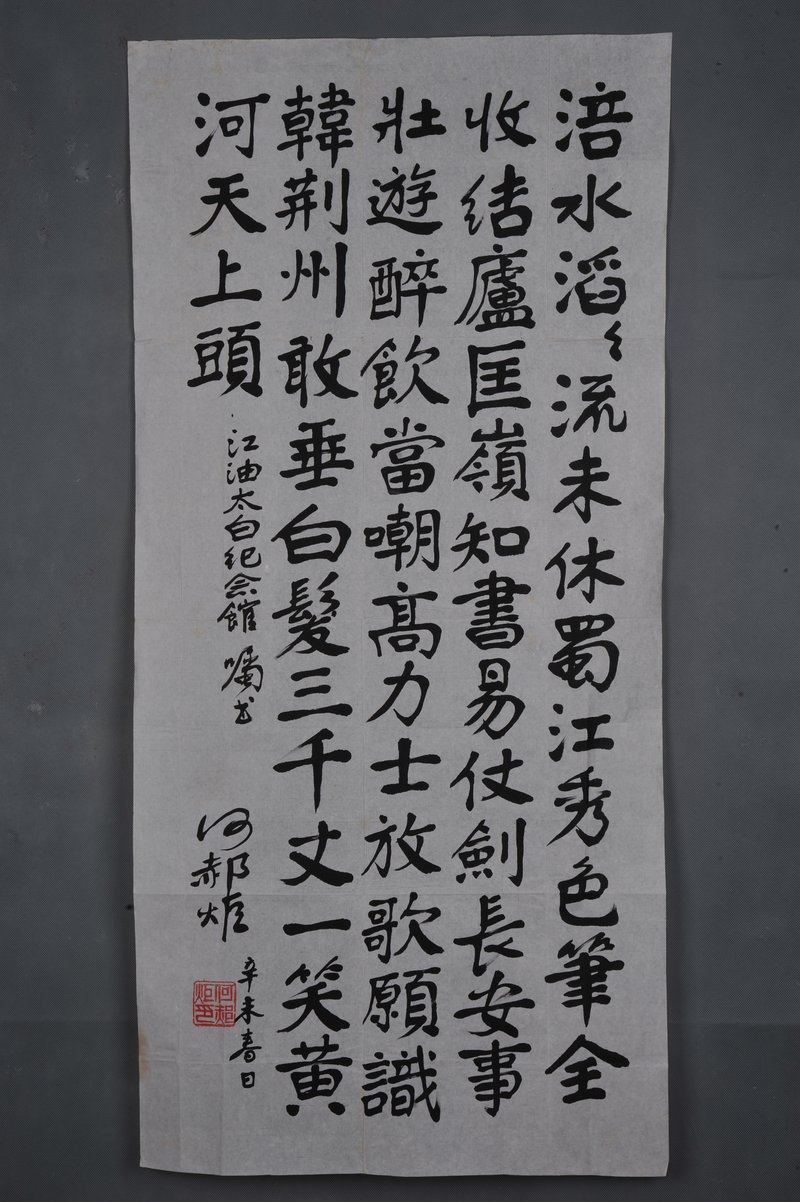 涪水滔々流未休蜀江秀色筆全
收結廬匡嶺知書易仗劍長安事
壯遊醉飲當嘲高力士放歌願識
韓荆州敢垂白髮三千丈一笑黄
河天上頭
江油太白纪念館 囑书
何郝炬
辛未春日
何郝炬印